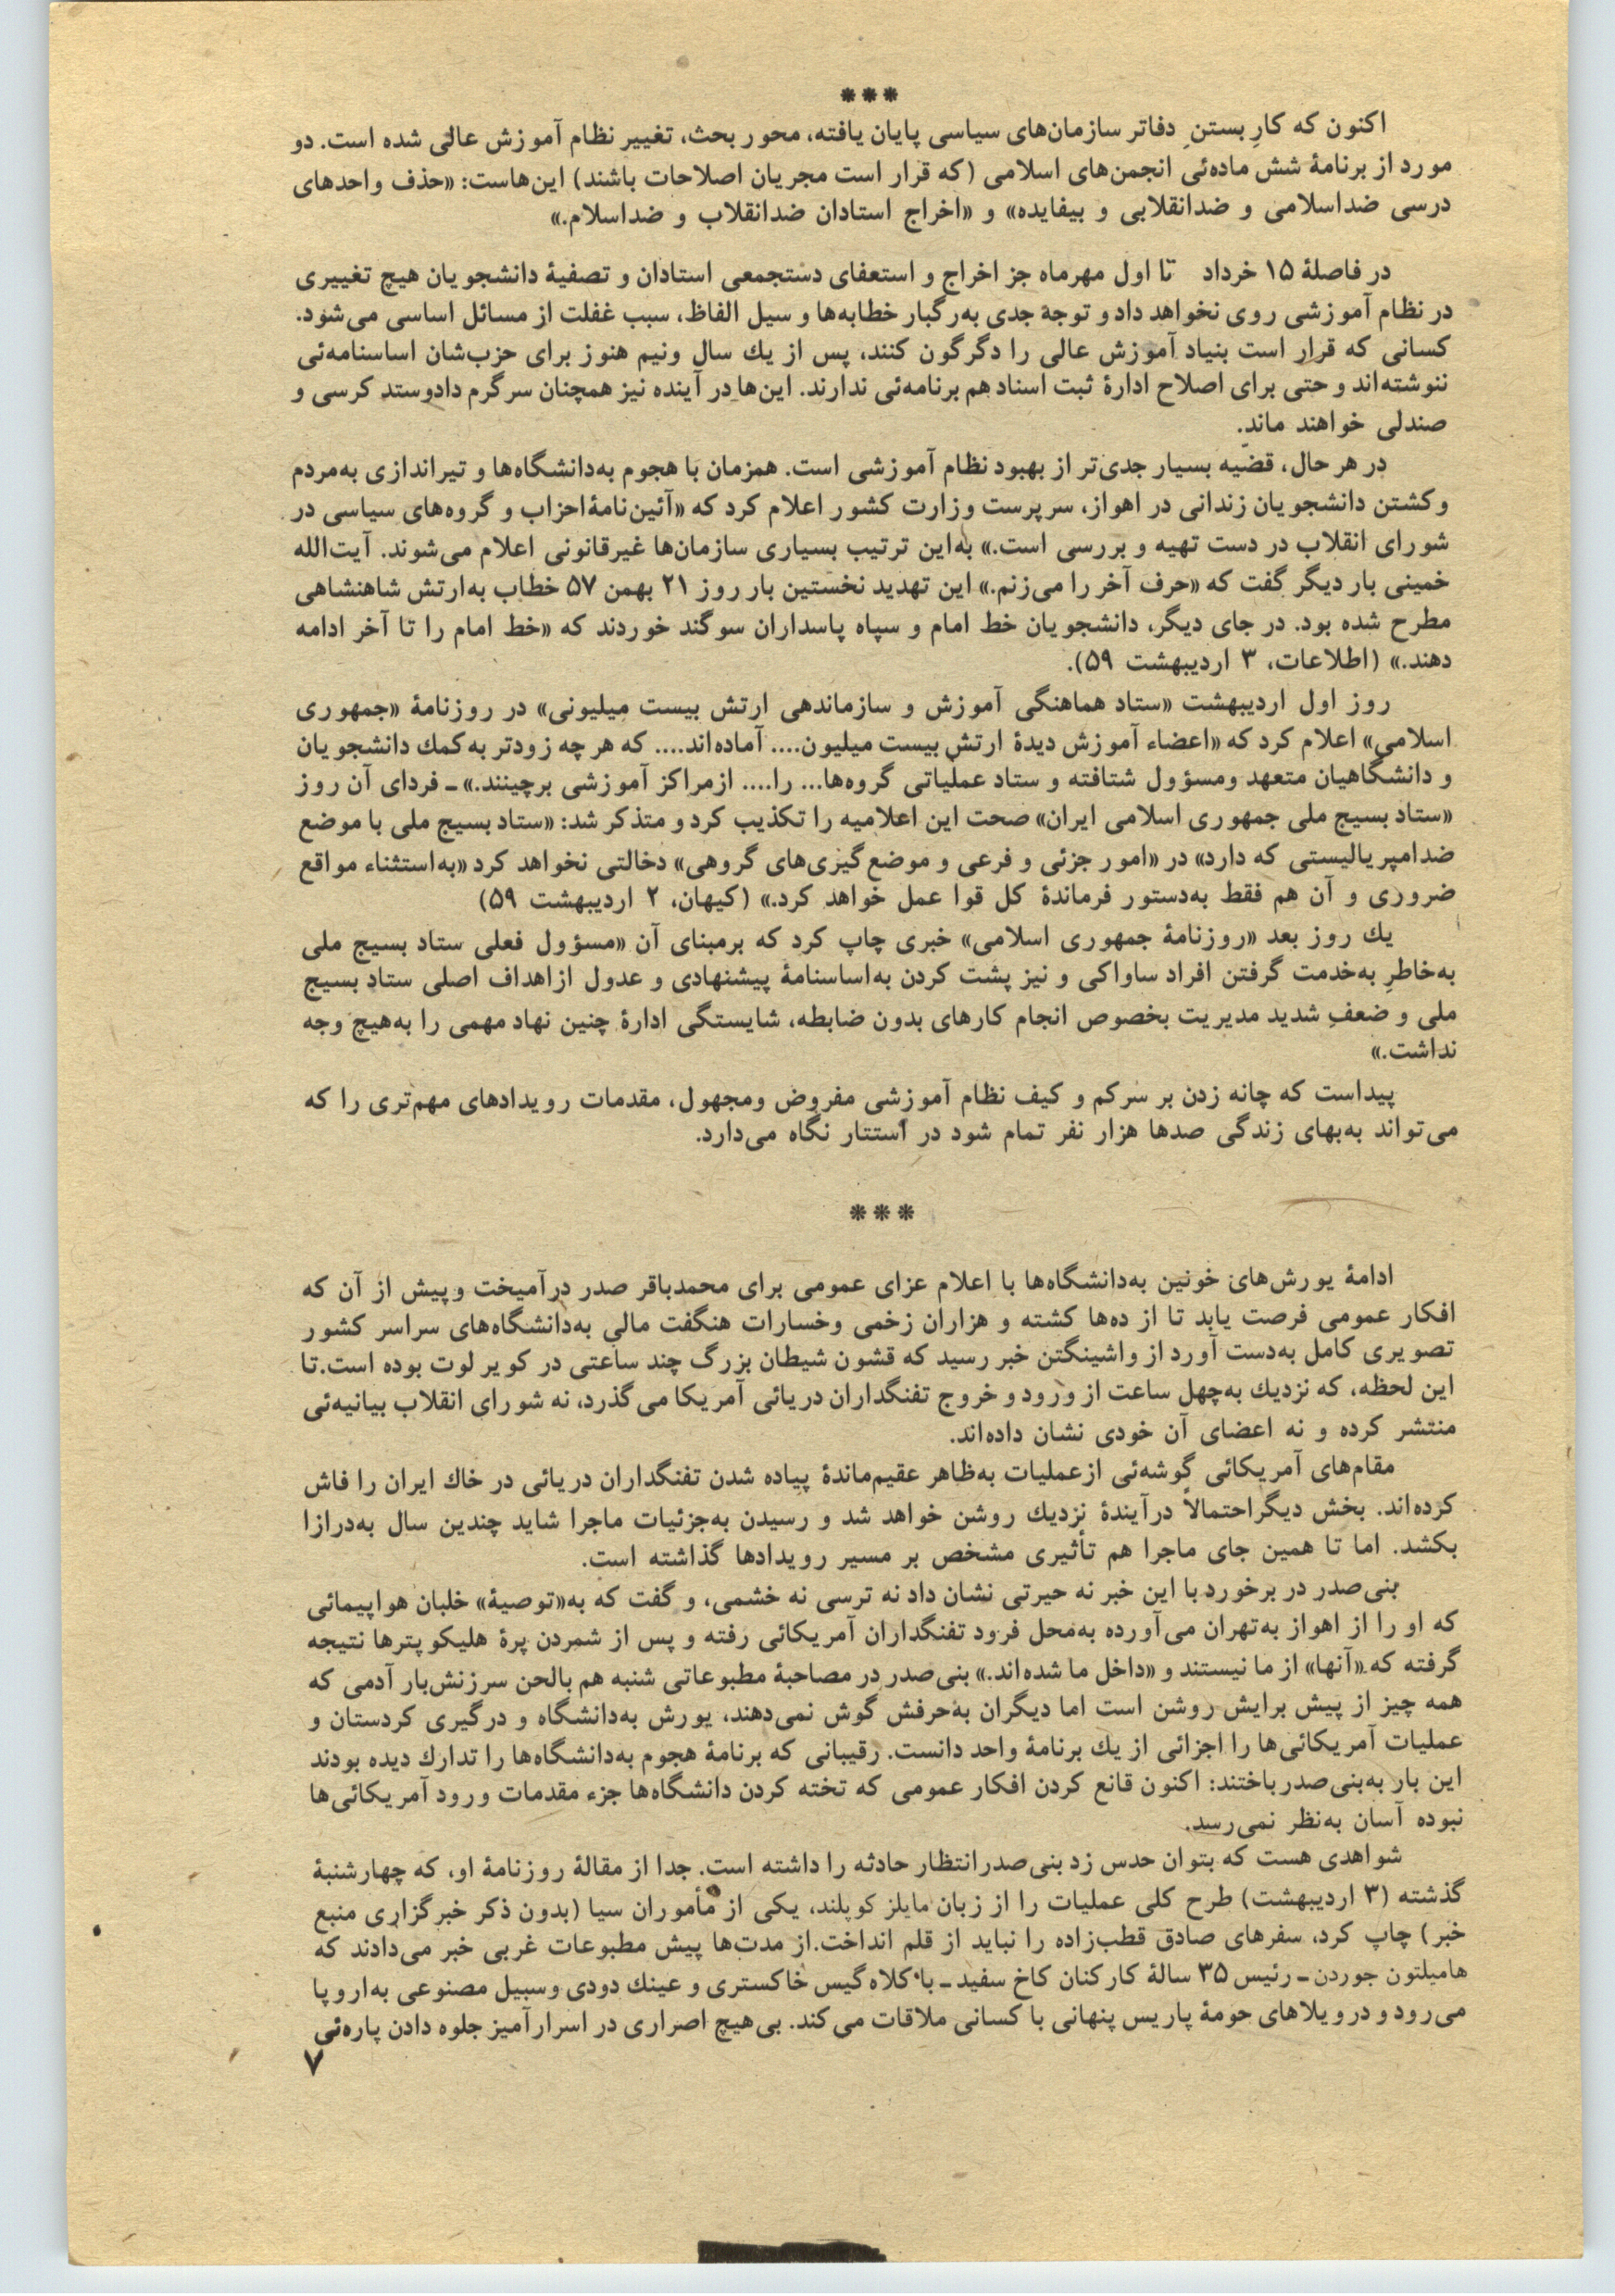 ***
اکنون که کارِ بستنِ دفاتر سازمان‌های سیاسی پایان یافته، محور بحث، تغییر نظام آموزش عالی شده است. دو
مورد از برنامهٔ شش ماده‌ئی انجمن‌های اسلامی (که قرار است مجریان اصلاحات باشند) این‌هاست: «حذف واحدهای
درسی ضداسلامی و ضدانقلابی و بیفایده» و «اخراج استادان ضدانقلاب و ضداسلام.»
در فاصلهٔ ۱۵ خرداد تا اول مهرماه جز اخراج و استعفای دستجمعی استادان و تصفیهٔ دانشجویان هیچ تغییری
در نظام آموزشی روی نخواهد داد و توجهٔ جدی به‌رگبار خطابه‌ها و سیل الفاظ، سبب غفلت از مسائل اساسی می‌شود.
کسانی که قرار است بنیاد آموزش عالی را دگرگون کنند، پس از یك سال ونیم هنوز برای حزب‌شان اساسنامه‌ئی
ننوشته‌اند و حتی برای اصلاح ادارهٔ ثبت اسناد هم برنامه‌ئی ندارند. این‌ها در آینده نیز همچنان سرگرم دادوستد کرسی و
صندلی خواهند ماند.
در هر حال، قضیه بسیار جدی‌تر از بهبود نظام آموزشی است. همزمان با هجوم به‌دانشگاه‌ها و تیراندازی به‌مردم
وکشتن دانشجویان زندانی در اهواز، سرپرست وزارت کشور اعلام کرد که «آئین‌نامهٔ احزاب و گروه‌های سیاسی در
شورای انقلاب در دست تهیه و بررسی است.» به‌این ترتیب بسیاری سازمان‌ها غیرقانونی اعلام می‌شوند. آیت‌الله
خمینی بار دیگر گفت که «حرف آخر را می‌زنم.» این تهدید نخستین بار روز ۲۱ بهمن ۵۷ خطاب به‌ارتش شاهنشاهی
مطرح شده بود. در جای دیگر، دانشجویان خط امام و سپاه پاسداران سوگند خوردند که «خط امام را تا آخر ادامه
دهند.» (اطلاعات، ۳ اردیبهشت ۵۹).
روز اول اردیبهشت «ستاد هماهنگی آموزش و سازماندهی ارتش بیست میلیونی» در روزنامهٔ «جمهوری
اسلامی» اعلام کرد که «اعضاء آموزش دیدهٔ ارتش بیست میلیون.... آماده‌اند.... که هر چه زودتر به‌کمك دانشجویان
و دانشگاهیان متعهد ومسؤول شتافته و ستاد عملیاتی گروه‌ها... را.... ازمراکز آموزشی برچینند.» ـ فردای آن روز
«ستاد بسیج ملی جمهوری اسلامی ایران» صحت این اعلامیه را تکذیب کرد و متذکر شد: «ستاد بسیج ملی با موضع
ضدامپریالیستی که دارد» در «امور جزئی و فرعی و موضع‌گیری‌های گروهی» دخالتی نخواهد کرد «به‌استثناء مواقع
ضروری و آن هم فقط به‌دستور فرماندهٔ کل قوا عمل خواهد کرد.» (کیهان، ۲ اردیبهشت ۵۹)
یك روز بعد «روزنامهٔ جمهوری اسلامی» خبری چاپ کرد که برمبنای آن «مسؤول فعلی ستاد بسیج ملی
به‌خاطرِ به‌خدمت گرفتن افراد ساواکی و نیز پشت کردن به‌اساسنامهٔ پیشنهادی و عدول ازاهداف اصلی ستاد بسیج
ملی و ضعفِ شدید مدیریت بخصوص انجام کارهای بدون ضابطه، شایستگی ادارهٔ چنین نهاد مهمی را به‌هیچ وجه
نداشت.»
پیداست که چانه زدن بر سرکم و کیف نظام آموزشی مفروض ومجهول، مقدمات رویدادهای مهم‌تری را که
می‌تواند به‌بهای زندگی صدها هزار نفر تمام شود در استتار نگاه می‌دارد.
***
ادامهٔ یورش‌های خونین به‌دانشگاه‌ها با اعلام عزای عمومی برای محمدباقر صدر درآمیخت وپیش از آن که
افکار عمومی فرصت یابد تا از ده‌ها کشته و هزاران زخمی وخسارات هنگفت مالی به‌دانشگاه‌های سراسر کشور
تصویری کامل به‌دست آورد از واشینگتن خبر رسید که قشون شیطان بزرگ چند ساعتی در کویر لوت بوده است. تا
این لحظه، که نزدیك به‌چهل ساعت از ورود و خروج تفنگداران دریائی آمریکا می‌گذرد، نه شورای انقلاب بیانیه‌ئی
منتشر کرده و نه اعضای آن خودی نشان داده‌اند.
مقام‌های آمریکائی گوشه‌ئی ازعملیات به‌ظاهر عقیم‌ماندهٔ پیاده شدن تفنگداران دریائی در خاك ایران را فاش
کرده‌اند. بخش دیگراحتمالاً درآیندهٔ نزدیك روشن خواهد شد و رسیدن به‌جزئیات ماجرا شاید چندین سال به‌درازا
بکشد. اما تا همین جای ماجرا هم تأثیری مشخص بر مسیر رویدادها گذاشته است.
بنی‌صدر در برخورد با این خبر نه حیرتی نشان داد نه ترسی نه خشمی، و گفت که به‌«توصیهٔ» خلبان هواپیمائی
که او را از اهواز به‌تهران می‌آورده به‌محل فرود تفنگداران آمریکائی رفته و پس از شمردن پرهٔ هلیکوپترها نتیجه
گرفته که «آنها» از ما نیستند و «داخل ما شده‌اند.» بنی‌صدر در مصاحبهٔ مطبوعاتی شنبه هم بالحن سرزنش‌بار آدمی که
همه چیز از پیش برایش روشن است اما دیگران به‌حرفش گوش نمی‌دهند، یورش به‌دانشگاه و درگیری کردستان و
عملیات آمریکائی‌ها را اجزائی از یك برنامهٔ واحد دانست. رقیبانی که برنامهٔ هجوم به‌دانشگاه‌ها را تدارك دیده بودند
این بار به‌بنی‌صدر باختند: اکنون قانع کردن افکار عمومی که تخته کردن دانشگاه‌ها جزء مقدمات ورود آمریکائی‌ها
نبوده آسان به‌نظر نمی‌رسد.
شواهدی هست که بتوان حدس زد بنی‌صدر انتظار حادثه را داشته است. جدا از مقالهٔ روزنامهٔ او، که چهارشنبهٔ
گذشته (۳ اردیبهشت) طرح کلی عملیات را از زبان مایلز کوپلند، یکی از مأموران سیا (بدون ذکر خبرگزاری منبع
خبر) چاپ کرد، سفرهای صادق قطب‌زاده را نباید از قلم انداخت. از مدت‌ها پیش مطبوعات غربی خبر می‌دادند که
هامیلتون جوردن ـ رئیس ۳۵ سالهٔ کارکنان کاخ سفید ـ با کلاه گیس خاکستری و عینك دودی وسبیل مصنوعی به‌اروپا
می‌رود و درویلاهای حومهٔ پاریس پنهانی با کسانی ملاقات می‌کند. بی‌هیچ اصراری در اسرارآمیز جلوه دادن پاره‌ئی
۷